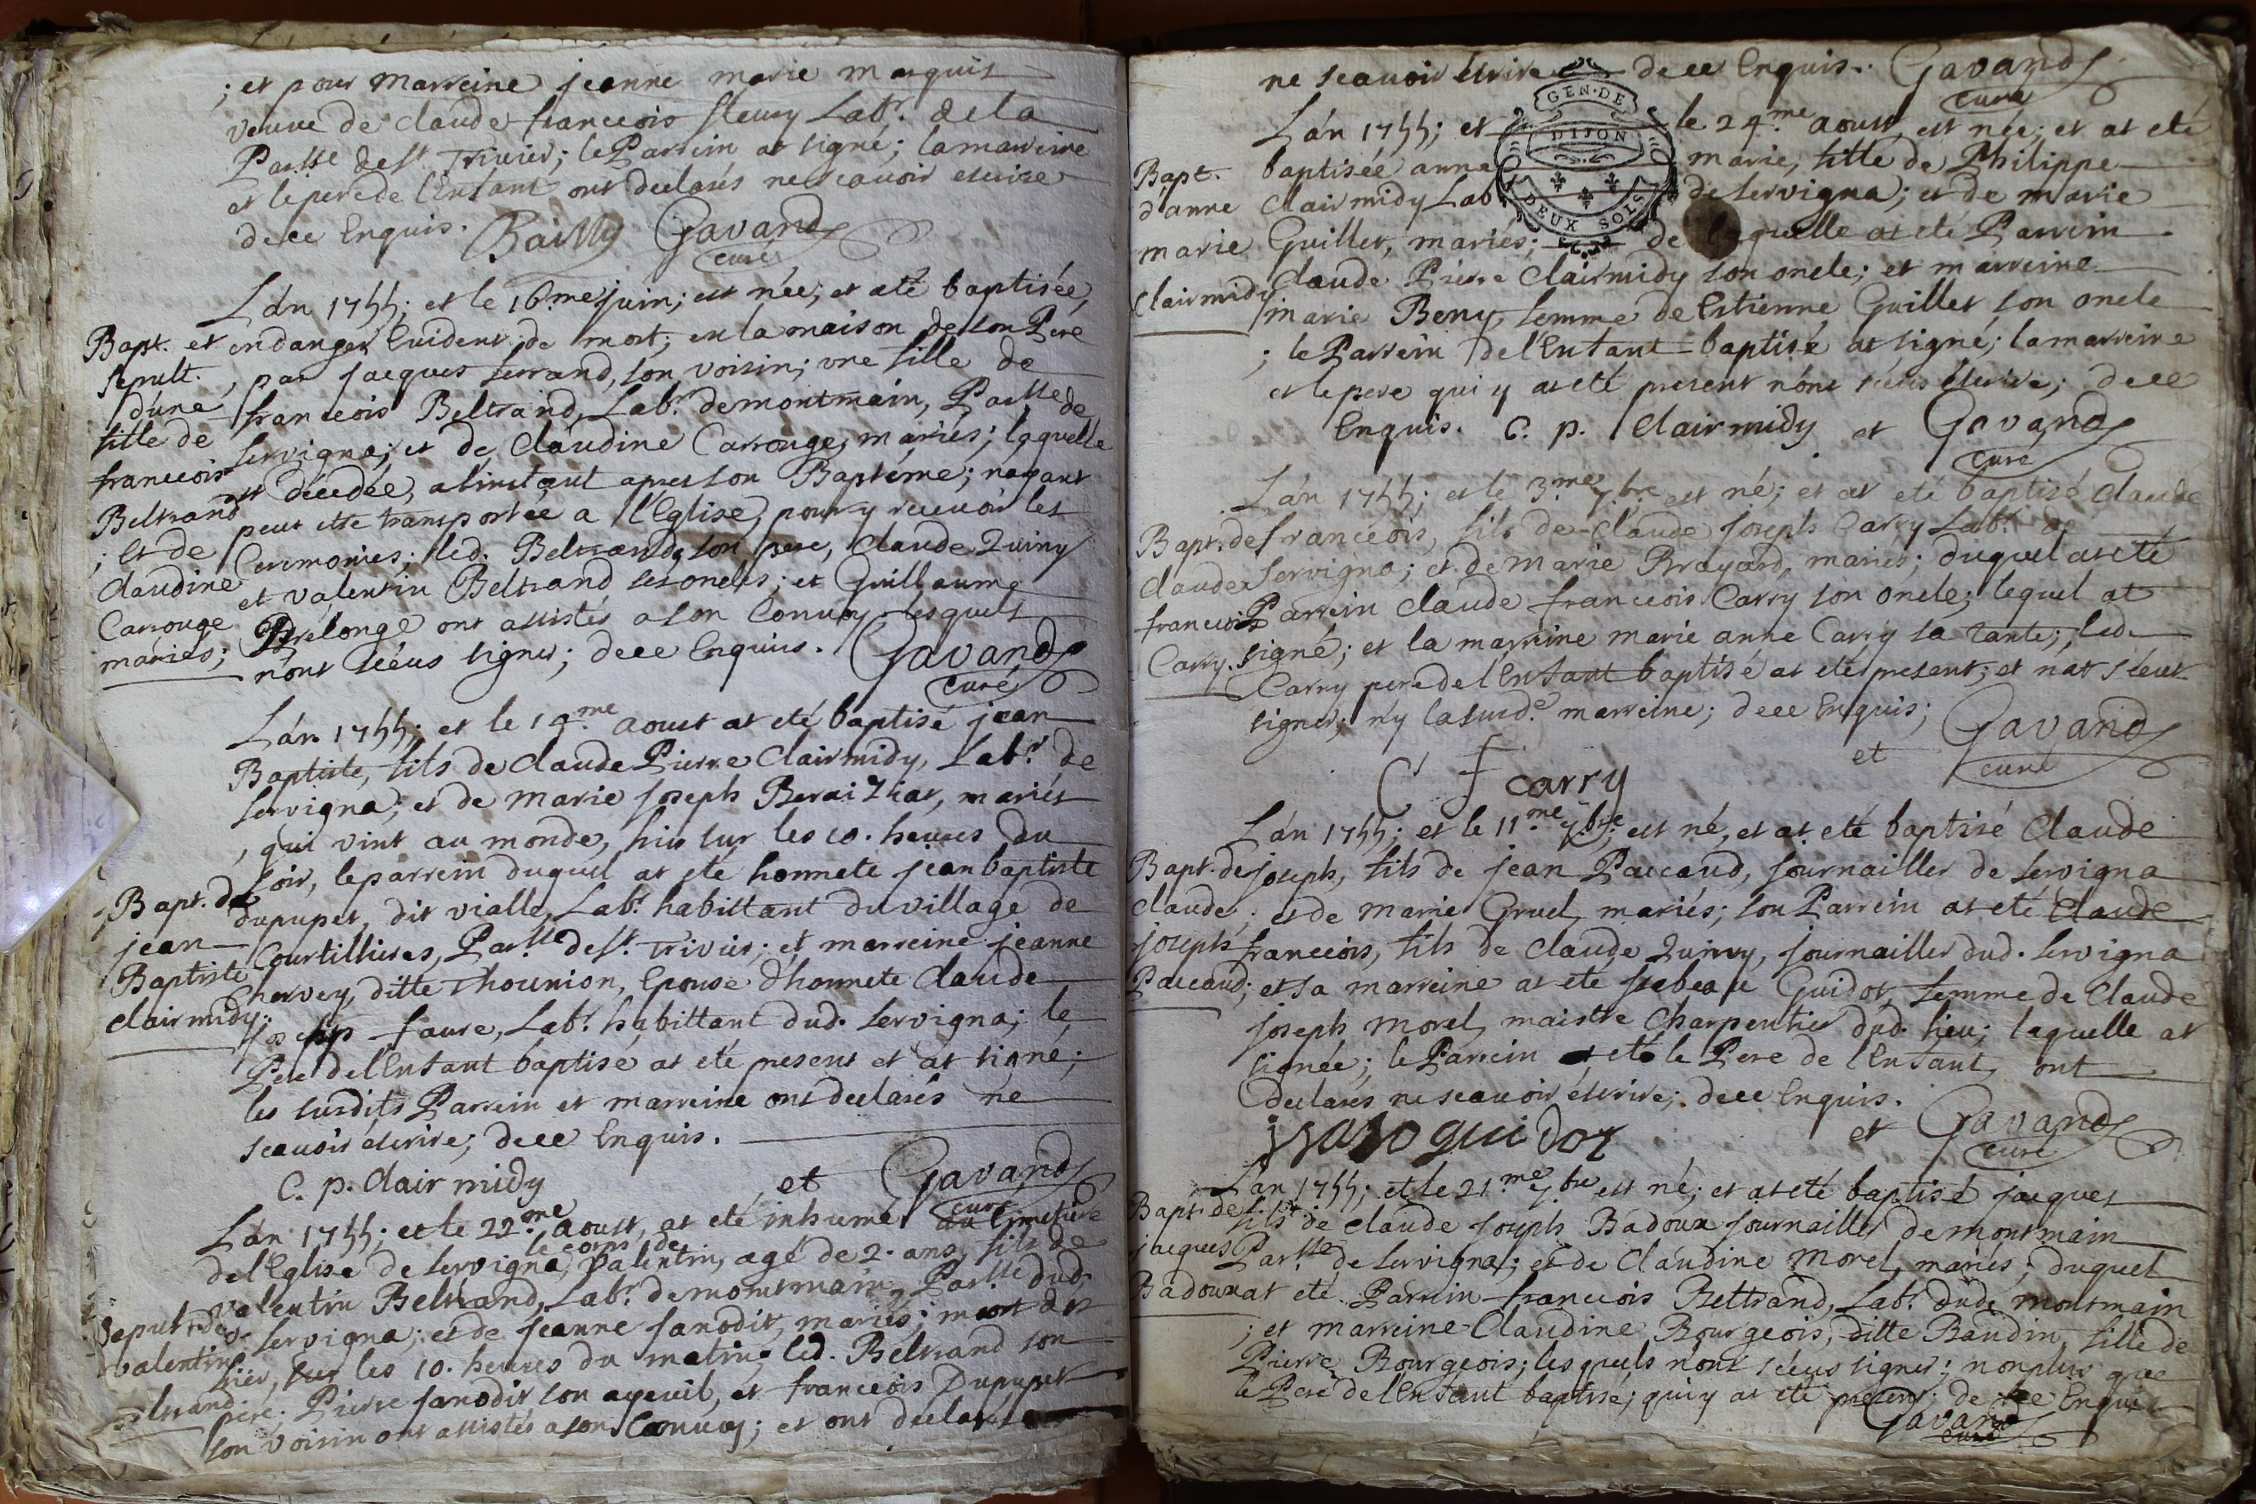 ; et pour marreine jeanne marie marquis
veuve de claude francois fleury Labr. de la
Parsse de st Trivier; le Parrein at signé; la marreine
et le pere de l'Enfant ont declarés ne scavoir escrire
de ce Enquis. Bailly Gavand
curé
L'án 1755; et le 16.me juin; est née; et at eté baptisée,
Bapt. et
en danger Evident de mort, en la maison de son Pere
sepult.
, par jacques ferrand, son voisin; une fille de
d'une
francois Beltrand, Labr. de montmain, Parsse de
fille de
servigna; et de Claudine Carrouge, mariés; laquelle
francois
est décedée, a l'instant apres son Baptéme; nayant
Beltrand
peut etre transportée a l'Eglise, pour y recevoir les
; Et de
Ceremonies; led. Beltrand son pere, Claude Quiny
Claudine
et valentin Beltrand ses oncles; et Guillaume
Carrouge
Prélonge ont assistés a son Convoy, lesquels
mariés;
n'ont scéus signer; de ce Enquis. Gavand
curé
L'án 1755; et le 14.me aoust at eté baptisé jean
Baptiste, fils de claude Pierre Clairmidy, Labr. de
servigna; et de marie joseph Berai, mariés
, qui vint au monde, hier sur les 10. heures du
soir, le parrein duquel at eté honnete jean baptiste
Bapt. de
dupupet, dit vialle, Labr. habittant du village de
jean
Courtillieres, Parsse de st. Trivier; et marreine jeanne
Baptiste
hervey, ditte Thounion, Epouse d'honnete Claude
clairmidy.
joseph faure, Labr. habittant dud. servigna; le
Pere de l'Enfant baptisé at eté present et at signé;
les susdits Parrein et marreine ont declarés ne
scavoir éscrire; de ce Enquis.
C. p. Clairmidy et Gavand
curé
L'án 1755; et le 22.me aoust, at eté inhumé au Cimetiere
le corps de
de l'Eglise de servigna, valentin, agé de 2. ans, fils de
valentin Beltrand, Labr. de montmain, Parsse dud.
Sepult. de
servigna; et de jeanne janodit, mariés; mort dez
valentin
hier, sur les 10. heures du matin; led. Beltrand son
Beltrand
pere; Pierre janodit son ayeuil, et francois Dupupet
son voisin ont assistés a son Convoy; et ont declarés
ne scavoir éscrire de ce Enquis. Gavand
curé
GEN. DE
DIJON
DEUX SOLS
L'án 1755; et le 24.me aoust, est née; et at eté
Bapt.
baptisée anne marie, fille de Philippe
d'anne
Clairmidy Lab de servigna; et de marie
marie
Guillet, mariés; de laquelle at eté Parrein
Clairmidy
Claude Pierre Clairmidy son oncle; et marreine
marie Beny, femme de Estienne Guillet, son oncle
; le Parrein de l'Enfant baptisé at signé; la marreine
et le pere qui y at eté present n'ónt scéus éscrire; de ce
Enquis. C. p. Clairmidy et Gavand
curé
L'án 1755; et le 3.me 7.bre est né; et at eté baptisé Claude
Bapt. de
francois, fils de Claude joseph Carry Labr. de
claude
servigna; et de marie Brayard, mariés; duquel at eté
francois
Parrein Claude francois Carry son oncle; lequel at
Carry.
signé; et la marreine marie anne Carry sa tante; led.
Carry pere de l'Enfant baptisé at eté present, et nat scéut
signer; n'y la susd.e marreine; de ce Enquis; Gavand
et
curé
C f carry
L'án 1755; et le 11.me 7.bre; est né, et at eté baptisé Claude
Bapt. de
joseph, fils de jean Paccaud, journailler de servigna
claude
; et de marie Gruel, mariés; son Parrein at eté Claude
joseph
francois, fils de Claude Quiny, journailler dud. servigna
Paccaud;
et sa marreine at eté jsabeau Guidot, femme de Claude
joseph morel, maistre Charpentier dud. lieu; laquelle at
signée; le Parrein et le Pere de l'Enfant, ont
Declarés ne scavoir éscrire; de ce Enquis.
et Gavand
curé
L'án 1755; et le 21.me 7.bre est né; et at eté baptisé jacques
Bapt. de
fils de claude joseph Badoux journailler de montmain
jacques
Parsse de servigna; et de Claudine morel, mariés; duquel
Badoux
at eté Parrein francois Beltrand, Labr. dud. montmain
; et marreine Claudine Bourgeois, ditte Baudin, fille de
Pierre Bourgeois; lesquels n'ont scéus signer; non plus que
le Pere de l'Enfant baptisé; qui y at eté present; de ce Enquis
Gavand
curé